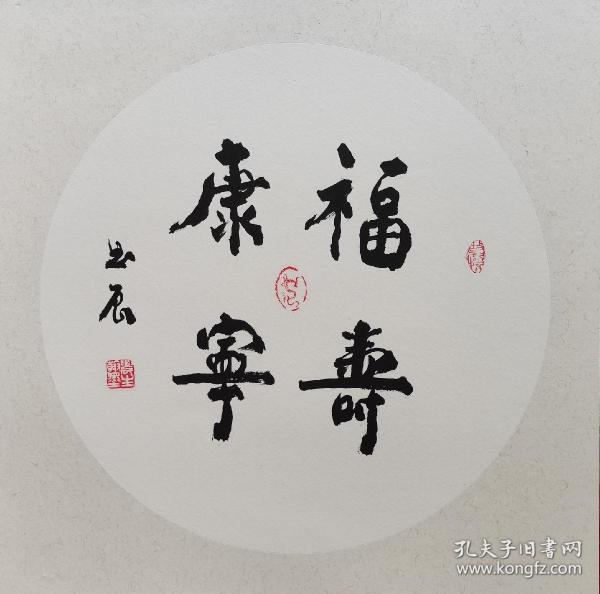 福壽
康寧
孔夫子旧书网
www.kongfz.com